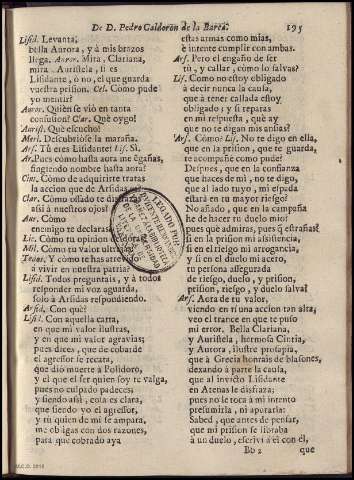 De D. Pedro Calderon de la Barca. 195
Lisid. Levanta,
bella Aurora, y à mis brazos
llega. Auror. Mira, Clariana,
mira, Auristela, si es
Lisidante, ò no, el que guarda
vuestra prision. Cel. Còmo pude
yo mentir?
Auror. Quièn se viò en tanta
confusion? Clar. Què oygo!
Aurist. Què escucho!
Merl. Descubriòse la maraña.
Ars. Tù eres Lisidante? Lis. Sì.
Ar. Pues còmo hasta aora me ẽgañas,
fingiendo nombre hasta aora?
Cint. Còmo de adquirirte tratas
la accion que de Arsidas
Clar. Còmo ossado te disfrazas
assi à nuestros ojos?
Aur. Còmo
enemigo te declaras
Lic. Còmo tu opinion
Mil. Còmo tu valor
Todos. Y còmo te has atrevido
à vivir en nuestra patria?
Lisid. Todos preguntais, y à todos
responder mi voz aguarda,
solo à Arsidas respondiendo.
Arsid. Con què?
Lisid. Con aquella carta,
en que mi valor ilustras,
y en que mi valor agravias;
pues dices, que de cobarde
el agressor se recata,
que diò muerte à Polidoro,
y el que el ser quien soy te valga,
pues no cumplido padeces;
y siendo assi, cosa es clara,
que siendo yo el agressor,
y tù quien de mi se ampara,
me obligas con dos razones,
para que cobrado aya
estas armas como mias,
è intente cumplir con ambas.
Ars. Pero el engaño de ser
tù, y callar, còmo lo salvas?
Lis. Como no estoy obligado
à decir nunca la causa,
que à tener callada estoy
obligado; y si reparas
en mi respuesta, què ay
que no te digan mis ansias?
Ars. Còmo? Lis. No te digo en ella,
que en la prision, que te guarda,
te acompañe como pude?
Despues, que en la confianza
que haces de mi, no te digo,
que al lado tuyo, mi espada
estarà en tu mayor riesgo?
No añado, que en la campaña
he de hacer tu duelo mio?
pues què admiras, pues què estrañas?
si en la prision mi assistencia,
si en el riesgo mi arrogancia,
y si en el duelo mi acero,
tu persona assegurada
de riesgo, duelo, y prision,
prision, riesgo, y duelo salva?
Ars. Aora de tu valor,
viendo en tì una accion tan alta,
veo el trance en que te puso
mi error. Bella Clariana,
y Auristela, hermosa Cintia,
y Aurora, ilustre prosapia,
que à Grecia honrais de blasones,
dexando à parte la causa,
que al invicto Lisidante
en Atenas le disfraza;
pues no le toca à mi intento
presumirla, ni apurarla:
Sabed, que antes de pensar,
que mi prision se libraba
à un duelo, escrivì à èl con èl,
Bb 2 que